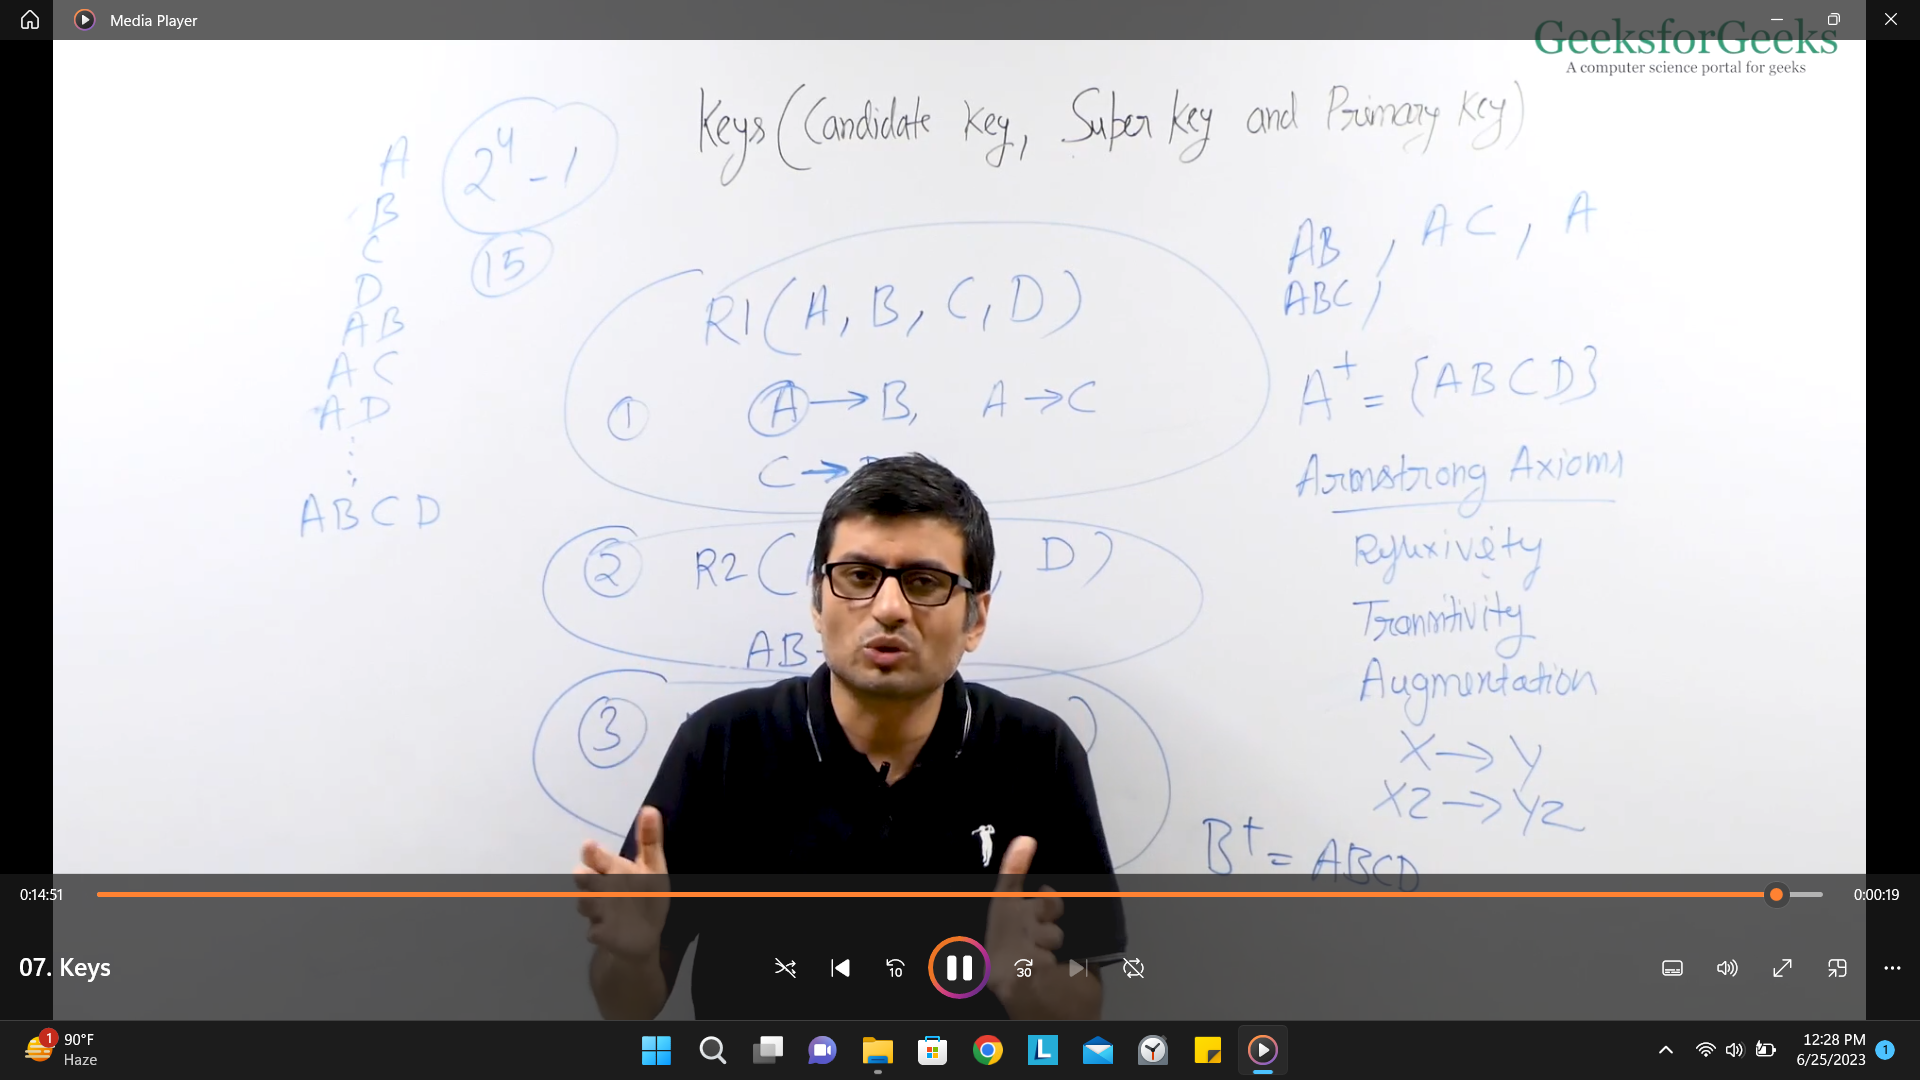 Media Player
GeeksforGeeks
A computer science portal for geeks
Keys (Candidate Key, Super Key and Primary Key)
A
B
C
D
AB
AC
AD
ABCD
2⁴ - 1
15
R1(A, B, C, D)
① A → B, A → C
C →
② R2( , D)
AB
③ )
AB, AC, A
ABC,
A⁺ = {ABCD}
Armstrong Axioms
Reflexivity
Transitivity
Augmentation
X → Y
XZ → YZ
B⁺ = ABCD
0:14:51
0:00:19
07. Keys
10
30
1
90°F
Haze
L
12:28 PM
6/25/2023
1